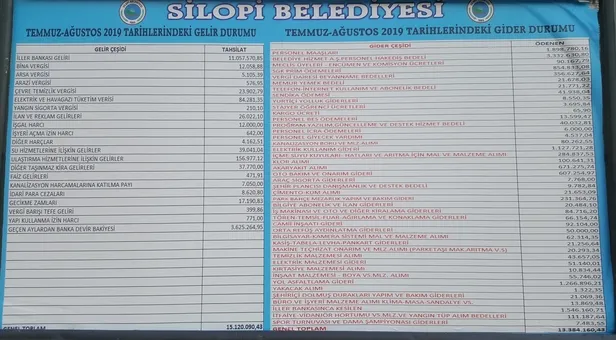 SİLOPİ BELEDİYESİ
TEMMUZ-AĞUSTOS 2019 TARİHLERİNDEKİ GELİR DURUMU
GELİR ÇEŞİDİ TAHSİLAT
İLLER BANKASI GELİRİ 11.057.570,85
BİNA VERGİSİ 12.058,88
ARSA VERGİSİ 5.105,39
ARAZİ VERGİSİ 576,95
ÇEVRE TEMİZLİK VERGİSİ 23.902,79
ELEKTRİK VE HAVAGAZI TÜKETİM VERİSİ 84.281,35
YANGIN SİGORTA VERGİSİ 210,10
İLAN VE REKLAM GELİRLERİ 26.022,10
İŞGAL HARCI 12.000,00
İŞYERİ AÇMA İZİN HARCI 642,00
DİĞER HARÇLAR 4.162,51
SU HİZMETLERİNE İLİŞKİN GELİRLER 39.041,04
ULAŞTIRMA HİZMETLERİNE İLİŞKİN GELİRLER 156.977,12
DİĞER TAŞINMAZ KİRA GELİRLERİ 37.770,00
FAİZ GELİRLERİ 471,91
KANALİZASYON HARCAMALARINA KATILMA PAYI 7.050,00
İDARİ PARA CEZALARI 8.620,80
GECİKME ZAMLARI 17.190,83
VERGİ BARIŞI TEFE GELİRİ 399,86
YAPI KULLANMA İZİN HARCI 771,00
GEÇEN AYLARDAN BANKA DEVİR BAKİYESİ 3.625.264,95
GENEL TOPLAM 15.120.090,43
TEMMUZ-AĞUSTOS 2019 TARİHLERİNDEKİ GİDER DURUMU
GİDER ÇEŞİDİ ÖDENEN
PERSONEL MAAŞLARI
BELEDİYE HİZMET A.Ş.PERSONEL HAKEDİŞ BEDELİ
MECLİS ÜYELERİ - ENCÜMEN VE KOMİSYON ÜCRETLERİ
SGK PRİM ÖDEMELERİ
VERGİ DAİRESİ BEYANNAME BEDELLERİ 356.627,64
PERSONEL YEMEK BEDELİ 21.678,03
TELEFON İNTERNET KULLANIM VE ABONELİK BEDELİ 21.771,22
SENDİKA ÖDEMESİ 41.938,04
YURTİÇİ YOLLUK GİDERLERİ 8.550,35
STAJYER ÖĞRENCİ ÜCRETLERİ 3.695,84
KARGO ÜCRETİ 65,90
PERSONEL BES ÖDEMELERİ 13.599,47
PROGRAM YAZILIM GÜNCELLEME VE DESTEK HİZMET BEDELİ 40.032,81
PERSONEL İCRA ÖDEMELERİ 6.000,00
PERSONEL GİYECEK YARDIMI 4.537,04
KANALİZASYON BORU VE MLZ ALIMI 80.262,55
ELEKTRİK KULLANIM GİDERİ 1.127.721,28
İÇME SUYU KUYULARI- HATLARI VE ARITMA İÇİN MAL VE MALZEME ALIMI 284.837,51
KEDAŞ ALIMI 100.641,31
AKARYAKIT ALIMI 671.275,74
OTO BAKIM VE ONARIM GİDERİ 607.254,97
ARAÇ SİGORTA GİDERLERİ 7.768,00
ŞEHİR PLANCISI DANIŞMANLIK VE DESTEK BEDELİ 9.782,84
ÇİMENTO-KUM ALIMI 21.653,09
PARK BAHÇE MEZARLIK YAPIM VE BAKIM GİDERİ 231.364,76
BİLGİYE ABONELİK VE İLAN GİDERLERİ 20.484,10
İŞ MAKİNASI VE OTO VE DİĞER KİRALAMA GİDERLERİ 84.716,20
TÖREN-TEMSİL-FUAR-AĞIRLAMA VE KONAKLAMA GİDERLERİ 66.154,74
CAMİİ İNŞAATI GİDERİ 92.104,00
ORTA REFÜJ AYDINLATMA GİDERLERİ 50.000,00
BİLGİSAYAR-KAMERA SİSTEMİ MAL VE MALZEME ALIMI 62.314,35
KAŞİŞ-TABELA-LEVHA-PANKART GİDERLERİ 21.256,64
MAKİNE TEÇHİZAT ONARIM VE MLZ.ALIMI (PARKETAŞI MAK.ARITMA V.S) 20.293,34
TEMİZLİK MALZEMESİ ALIMI 43.657,05
ELEKTRİK MALZEMESİ GİDERİ 51.140,01
KIRTASİYE MALZEMESİ ALIMI 10.834,44
İNŞAAT MALZEMESİ - BOYA VS. ALIMI 55.746,02
YOL ASFALTLAMA GİDERİ 1.266.896,21
YAKACAK ALIMI 1.322,35
ŞEHİRİÇİ DOLMUŞ DURAKLARI YAPIM VE BAKIM GİDERİ 21.069,36
BÜRO VE İŞYERİ MALZEME ALIMI KLİMA-MASA-SANDALYE VS. 13.869,48
İLLER BANKASINCA KESİLEN 1.546.160,71
İTFAİYE-VİDANJÖR HORTUMU VS.MLZ.VE YANGIN TÜP ALIM BEDELLERİ 111.187,64
SPOR TURNUVASI VE DAMA ŞAMPİYONASI GİDERLERİ 7.483,55
GENEL TOPLAM 13.384.160,43